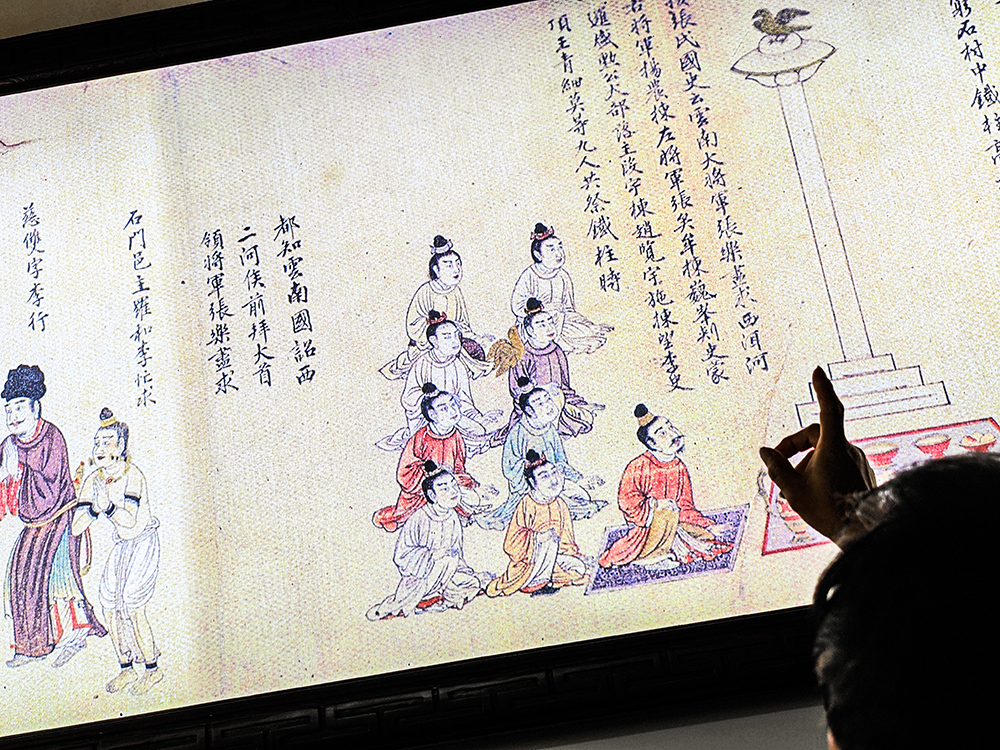 石村中鐵柱高
按張氏國史云雲南大將軍張樂盡求西洱河
右將軍楊農棟左將軍張矣牟棟巍峯刺史蒙
邏盛勲公大部落主段宇棟趙覽宇施棟望李史
頂王青細莫等九人共祭鐵柱時
都知雲南國詔西
二河侯前拜大首
領將軍張樂盡求
石門邑主羅和李忙求
慈雙宇李行